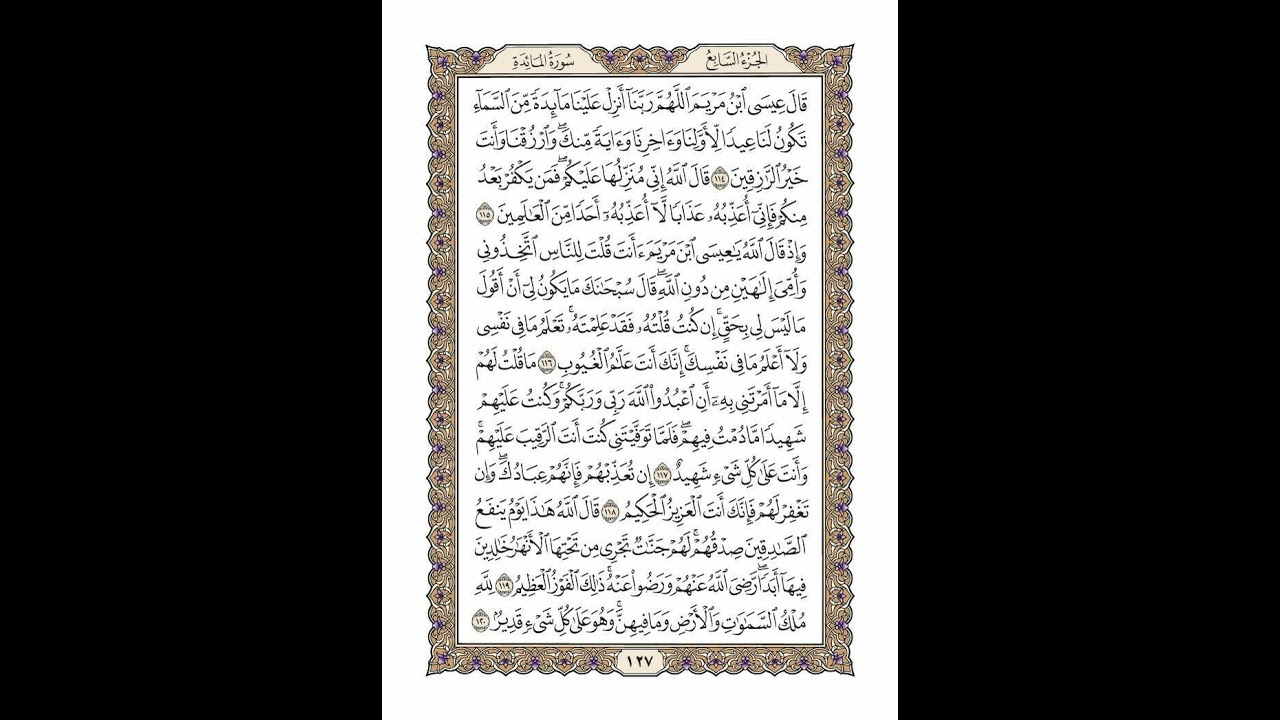 الجُزْءُ السَّابِعُ
سُورَةُ المَائِدَةِ
قَالَ عِيسَى ٱبْنُ مَرْيَمَ ٱللَّهُمَّ رَبَّنَآ أَنزِلْ عَلَيْنَا مَآئِدَةً مِّنَ ٱلسَّمَآءِ
تَكُونُ لَنَا عِيدًا لِّأَوَّلِنَا وَءَاخِرِنَا وَءَايَةً مِّنكَۖ وَٱرْزُقْنَا وَأَنتَ
خَيْرُ ٱلرَّٰزِقِينَ ١١٤ قَالَ ٱللَّهُ إِنِّي مُنَزِّلُهَا عَلَيْكُمْۖ فَمَن يَكْفُرْ بَعْدُ
مِنكُمْ فَإِنِّيٓ أُعَذِّبُهُۥ عَذَابًا لَّآ أُعَذِّبُهُۥٓ أَحَدًا مِّنَ ٱلْعَٰلَمِينَ ١١٥
وَإِذْ قَالَ ٱللَّهُ يَٰعِيسَى ٱبْنَ مَرْيَمَ ءَأَنتَ قُلْتَ لِلنَّاسِ ٱتَّخِذُونِي
وَأُمِّيَ إِلَٰهَيْنِ مِن دُونِ ٱللَّهِۖ قَالَ سُبْحَٰنَكَ مَا يَكُونُ لِيٓ أَنْ أَقُولَ
مَا لَيْسَ لِي بِحَقٍّۚ إِن كُنتُ قُلْتُهُۥ فَقَدْ عَلِمْتَهُۥۚ تَعْلَمُ مَا فِي نَفْسِي
وَلَآ أَعْلَمُ مَا فِي نَفْسِكَۚ إِنَّكَ أَنتَ عَلَّٰمُ ٱلْغُيُوبِ ١١٦ مَا قُلْتُ لَهُمْ
إِلَّا مَآ أَمَرْتَنِي بِهِۦٓ أَنِ ٱعْبُدُواْ ٱللَّهَ رَبِّي وَرَبَّكُمْۚ وَكُنتُ عَلَيْهِمْ
شَهِيدًا مَّا دُمْتُ فِيهِمْۖ فَلَمَّا تَوَفَّيْتَنِي كُنتَ أَنتَ ٱلرَّقِيبَ عَلَيْهِمْۚ
وَأَنتَ عَلَىٰ كُلِّ شَيْءٍ شَهِيدٌ ١١٧ إِن تُعَذِّبْهُمْ فَإِنَّهُمْ عِبَادُكَۖ وَإِن
تَغْفِرْ لَهُمْ فَإِنَّكَ أَنتَ ٱلْعَزِيزُ ٱلْحَكِيمُ ١١٨ قَالَ ٱللَّهُ هَٰذَا يَوْمُ يَنفَعُ
ٱلصَّٰدِقِينَ صِدْقُهُمْۚ لَهُمْ جَنَّٰتٌ تَجْرِي مِن تَحْتِهَا ٱلْأَنْهَٰرُ خَٰلِدِينَ
فِيهَآ أَبَدًاۖ رَّضِيَ ٱللَّهُ عَنْهُمْ وَرَضُواْ عَنْهُۚ ذَٰلِكَ ٱلْفَوْزُ ٱلْعَظِيمُ ١١٩ لِلَّهِ
مُلْكُ ٱلسَّمَٰوَٰتِ وَٱلْأَرْضِ وَمَا فِيهِنَّۚ وَهُوَ عَلَىٰ كُلِّ شَيْءٍ قَدِيرٌ ١٢٠
١٢٧